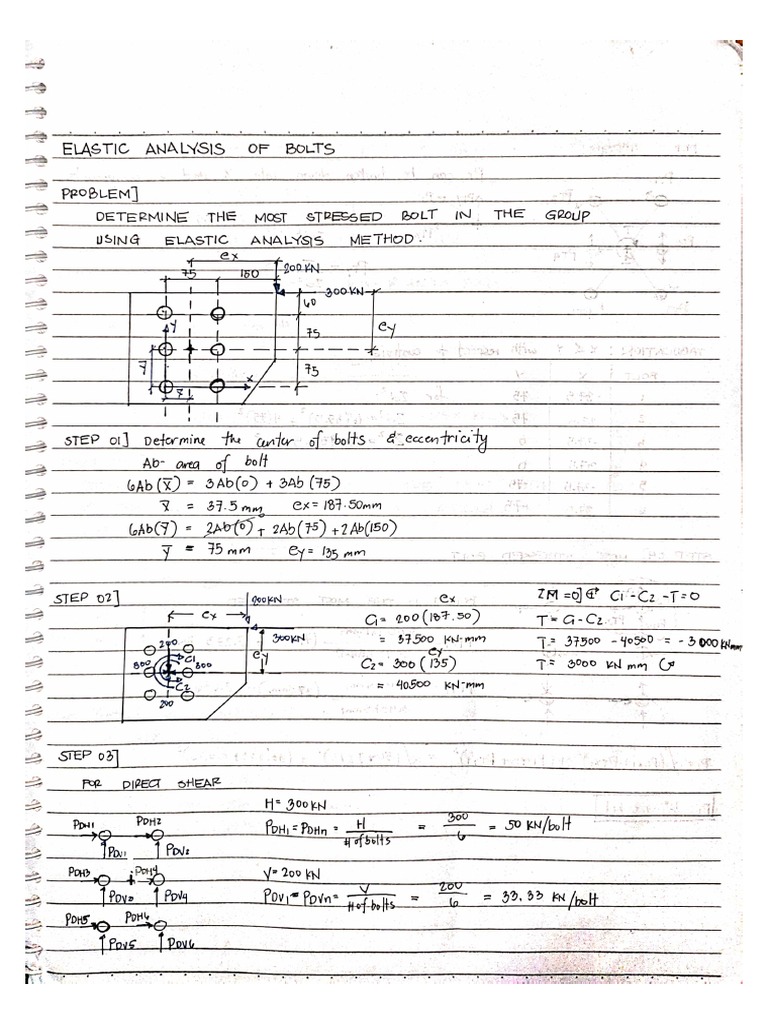 ELASTIC ANALYSIS OF BOLTS
PROBLEM]
DETERMINE THE MOST STRESSED BOLT IN THE GROUP
USING ELASTIC ANALYSIS METHOD.
ex
75 150 200 KN
300 KN
60
y
75
ey
ȳ
75
x
x̄
STEP 01] Determine the center of bolts & eccentricity
Ab- area of bolt
6Ab(x̄) = 3Ab(0) + 3Ab(75)
x̄ = 37.5 mm ex = 187.50mm
6Ab(ȳ) = 2Ab(0) + 2Ab(75) + 2Ab(150)
ȳ = 75 mm ey = 135 mm
STEP 02]
200KN
ex
300KN
ey
200
300 C1 300
C2
200
ex
C1 = 200 (187.50)
= 37500 KN-mm
ey
C2 = 300 (135)
= 40500 KN-mm
ΣM =0] C1 - C2 - T = 0
T = C1 - C2
T = 37500 - 40500 = - 3000 KNmm
T = 3000 KN mm
STEP 03]
FOR DIRECT SHEAR
H = 300 KN
PDH1 PDH2
PDH1 = PDHn = H / # of bolts = 300 / 6 = 50 KN/bolt
PDV1 PDV2
PDH3 PDH4
V = 200 KN
PDV3 PDV4
PDV1 = PDVn = V / # of bolts = 200 / 6 = 33.33 KN/bolt
PDH5 PDH6
PDV5 PDV6